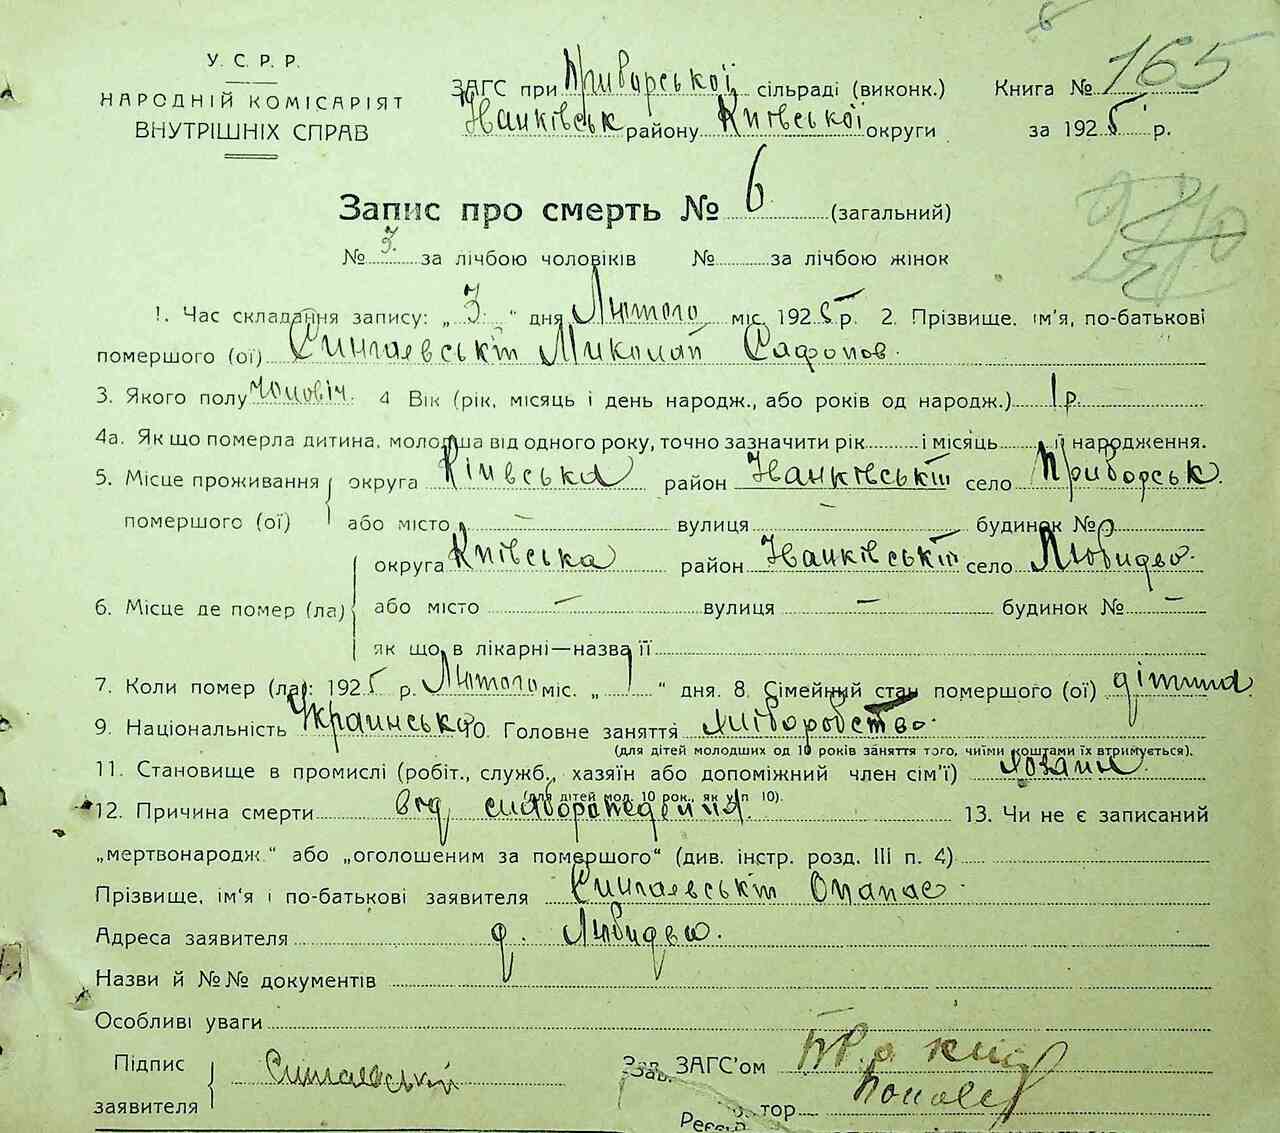 У. С. Р. Р.
НАРОДНІЙ КОМІСАРІЯТ
ВНУТРІШНІХ СПРАВ
ЗАГС при Приборської сільраді (виконк.)
Іванківськ району Київської округи
Книга № 165
за 1925 р.
Запис про смерть № 6 (загальний)
№ 3 за лічбою чоловіків № за лічбою жінок
1. Час складання запису: „ 3 “ дня Лютого міс. 1925 р. 2. Прізвище, ім'я, по-батькові
помершого (ої) Сингаевськіт Миколай Сафонов.
3. Якого полу Чоловіч. 4 Вік (рік, місяць і день народж., або років од народж.) 1 р.
4а. Якщо померла дитина, молодша від одного року, точно зазначити рік і місяць її народження.
5. Місце проживання округа Київська район Іванківській село Приборськ.
помершого (ої) або місто — вулиця — будинок №
округа Київська район Іванківській село
6. Місце де помер (ла) або місто — вулиця — будинок № —
як що в лікарні—назва її
7. Коли помер (ла): 1925 р. Лютого міс. „ 1 “ дня. 8. Сімейний стан помершого (ої) дітина
9. Національність Украинська 10. Головне заняття хліборобство.
(для дітей молодших од 10 років заняття того, чиїми коштами їх втримується).
11. Становище в промислі (робіт., служб., хазяїн або допоміжний член сім'ї) хозаин
(для дітей мол. 10 рок., як у п 10).
12. Причина смерти від 13. Чи не є записаний
„мертвонародж.“ або „оголошеним за помершого“ (див. інстр. розд. III п. 4)
Прізвище, ім'я і по-батькові заявителя Сингаевськіт Опанас.
Адреса заявителя д.
Назви й №№ документів
Особливі уваги
Підпис Сингаевський Зав. ЗАГС'ом
заявителя